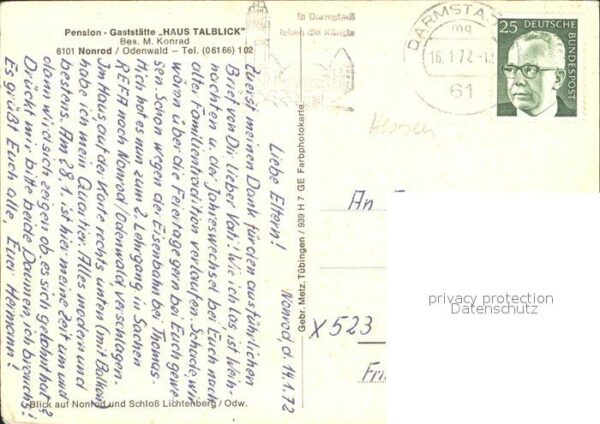 Pension - Gaststätte „HAUS TALBLICK"
Bes. M. Konrad
6101 Nonrod / Odenwald - Tel. (06166) 102
in Darmstadt
leben die Künste
DARMSTADT
16.1.72
61
25
DEUTSCHE
BUNDESPOST
Hessen
Nonrod, d. 14.1.72
Liebe Eltern!
Zuerst meinen Dank für den ausführlichen
Brief von Dir lieber Vati! Wie ich las ist Weih-
nachten u. der Jahreswechsel bei Euch nach
alter Familientradition verlaufen. Schade, wir
wären über die Feiertage gern bei Euch gewe-
sen. Schon wegen der Eisenbahn bei Thomas.
Mich hat es nun zum 2. Lehrgang in Sachen
REFA nach Nonrod/Odenwald verschlagen.
Im Haus auf der Karte rechts unten (mit Balkon)
habe ich mein Quartier. Alles modern und
bestens. Am 28.1. ist hier meine Zeit um und
dann wird sich zeigen ob es sich gelohnt hat?
Drückt mir bitte beide Daumen, ich brauch's!
Es grüßt Euch alle, Euer Hermann!
Blick auf Nonrod und Schloß Lichtenberg / Odw.
Gebr. Metz, Tübingen / 939 H 7 GE Farbphotokarte
An
X 523
privacy protection
Datenschutz